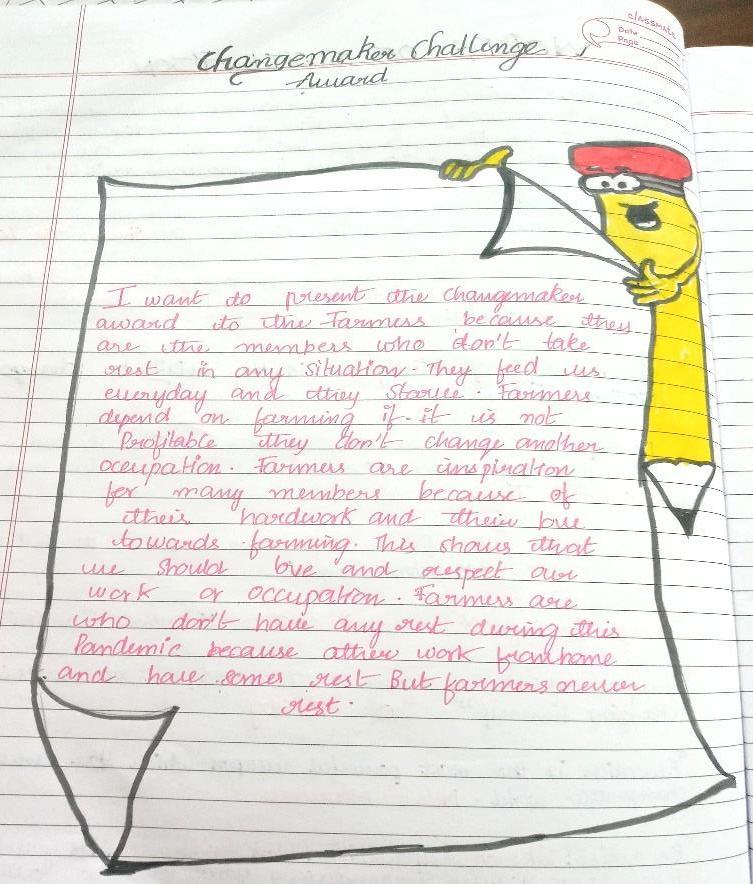 classmate
Date
Page
Changemaker Challenge
Award
I want to present the Changemaker
award to the Farmers because they
are the members who don't take
rest in any situation. They feed us
everyday and they Starve. Farmers
depend on farming if it is not
Profitable they don't change another
occupation. Farmers are inspiration
for many members because of
their hardwork and their love
towards farming. This shows that
we should love and respect our
work or occupation. Farmers are
who don't have any rest during this
Pandemic because other work from home
and have some rest But farmers never
rest.